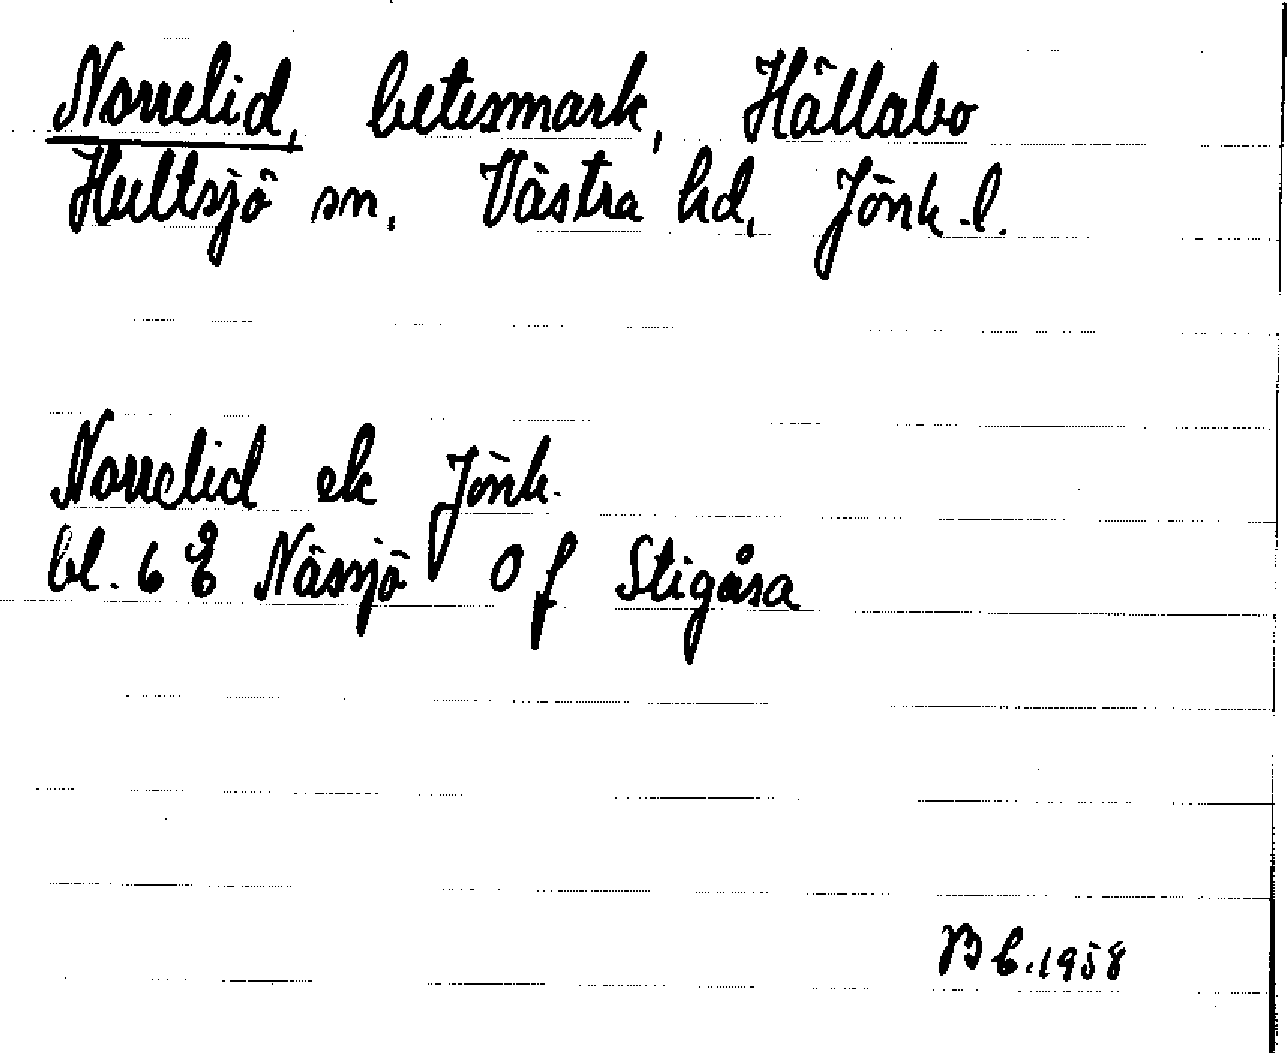 Norrelid, betesmark, Hällabo
Hultsjö sn. Västra hd, Jönk.l.
Norrelid ek Jönk.
bl. 6 E Nässjö 0 f Stigåsa
B b. 1958